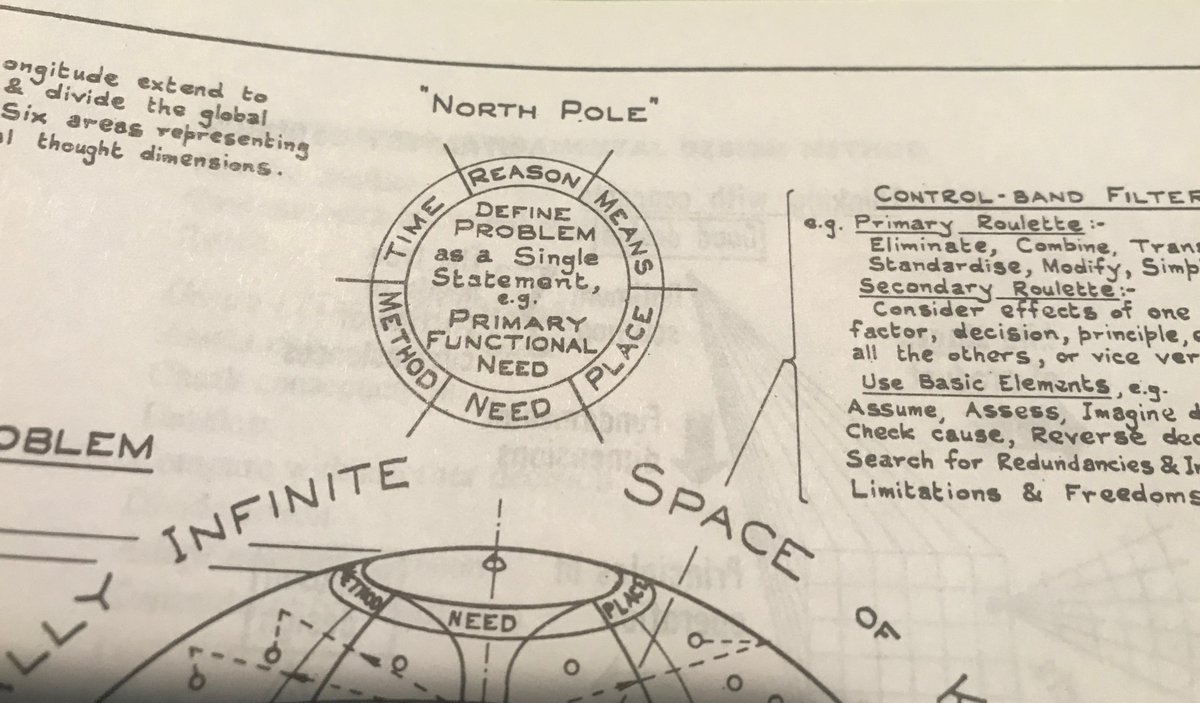 ongitude extend to
& divide the global
Six areas representing
thought dimensions.
"NORTH POLE"
REASON
MEANS
PLACE
NEED
METHOD
TIME
DEFINE
PROBLEM
as a Single
Statement,
e.g.
PRIMARY
FUNCTIONAL
NEED
CONTROL-BAND FILTER
e.g. Primary Roulette:-
Eliminate, Combine, Trans
Standardise, Modify, Simp
Secondary Roulette:-
Consider effects of one
factor, decision, principle,
all the others, or vice ver
Use Basic Elements, e.g.
Assume, Assess, Imagine d
Check cause, Reverse dec
Search for Redundancies & I
Limitations & Freedoms
OBLEM
INFINITE
SPACE
OF
LLY
METHOD
NEED
PLACE